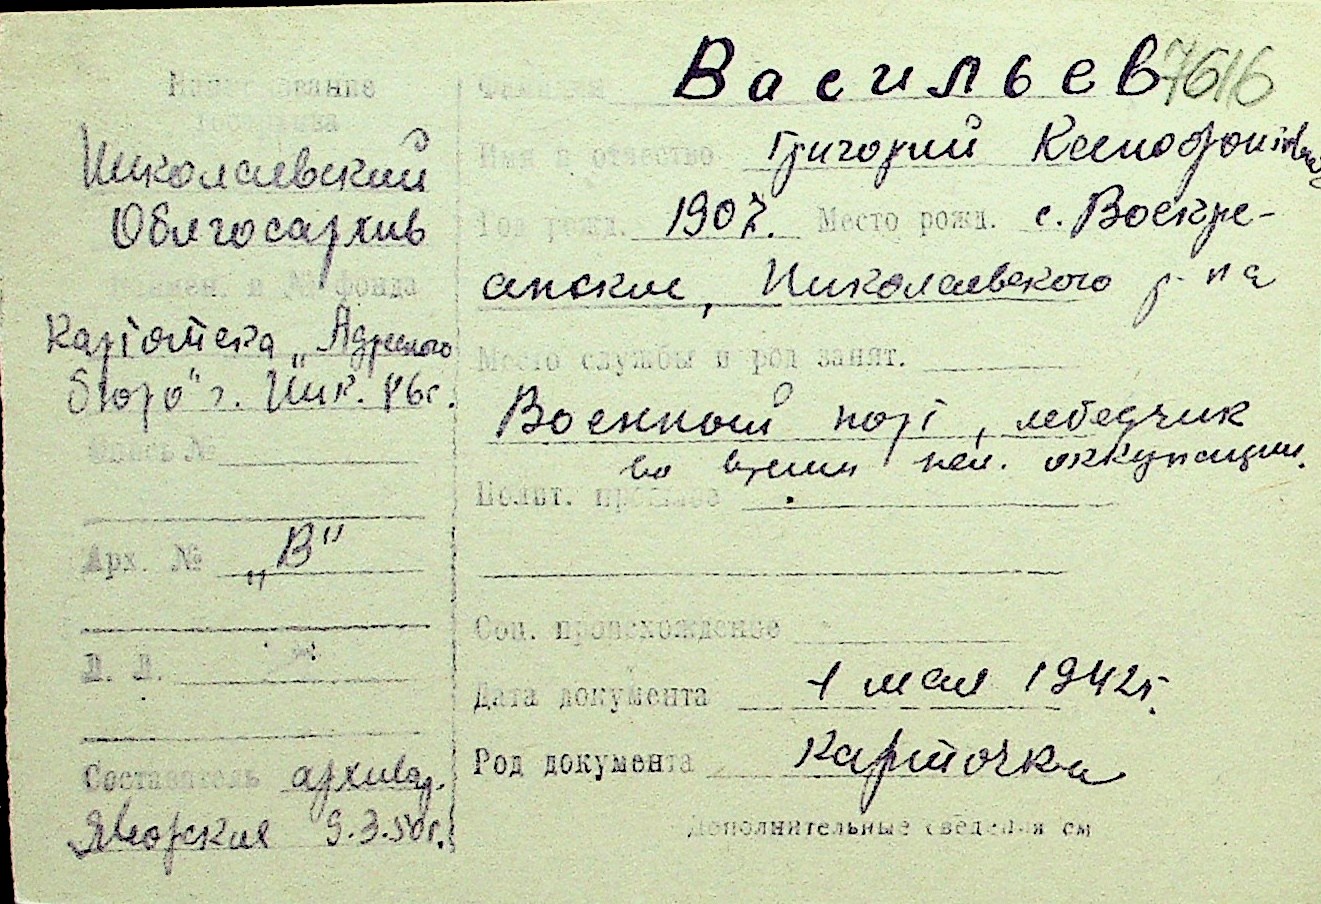 Наименование
Госархива
Николаевский
Облгосархив
Наимен. и № фонда
Картотека „Адресного
бюро" г. Ник. 46с.
Опись №
Арх. № „В"
Л. Л.
Составитель архивар.
Яворская 9.3.50г.
Фамилия Васильев 7616
Имя и отчество Григорий Ксенофонтович
Год рожд. 1907. Место рожд. с. Воскре-
сенское, Николаевского р-на
Место службы и род занят.
Военный порт, лебедчик
во время нем. оккупации.
Полит. прошлое
Соц. происхождение
Дата документа 1 мая 1942г.
Род документа карточка
Дополнительные сведения см